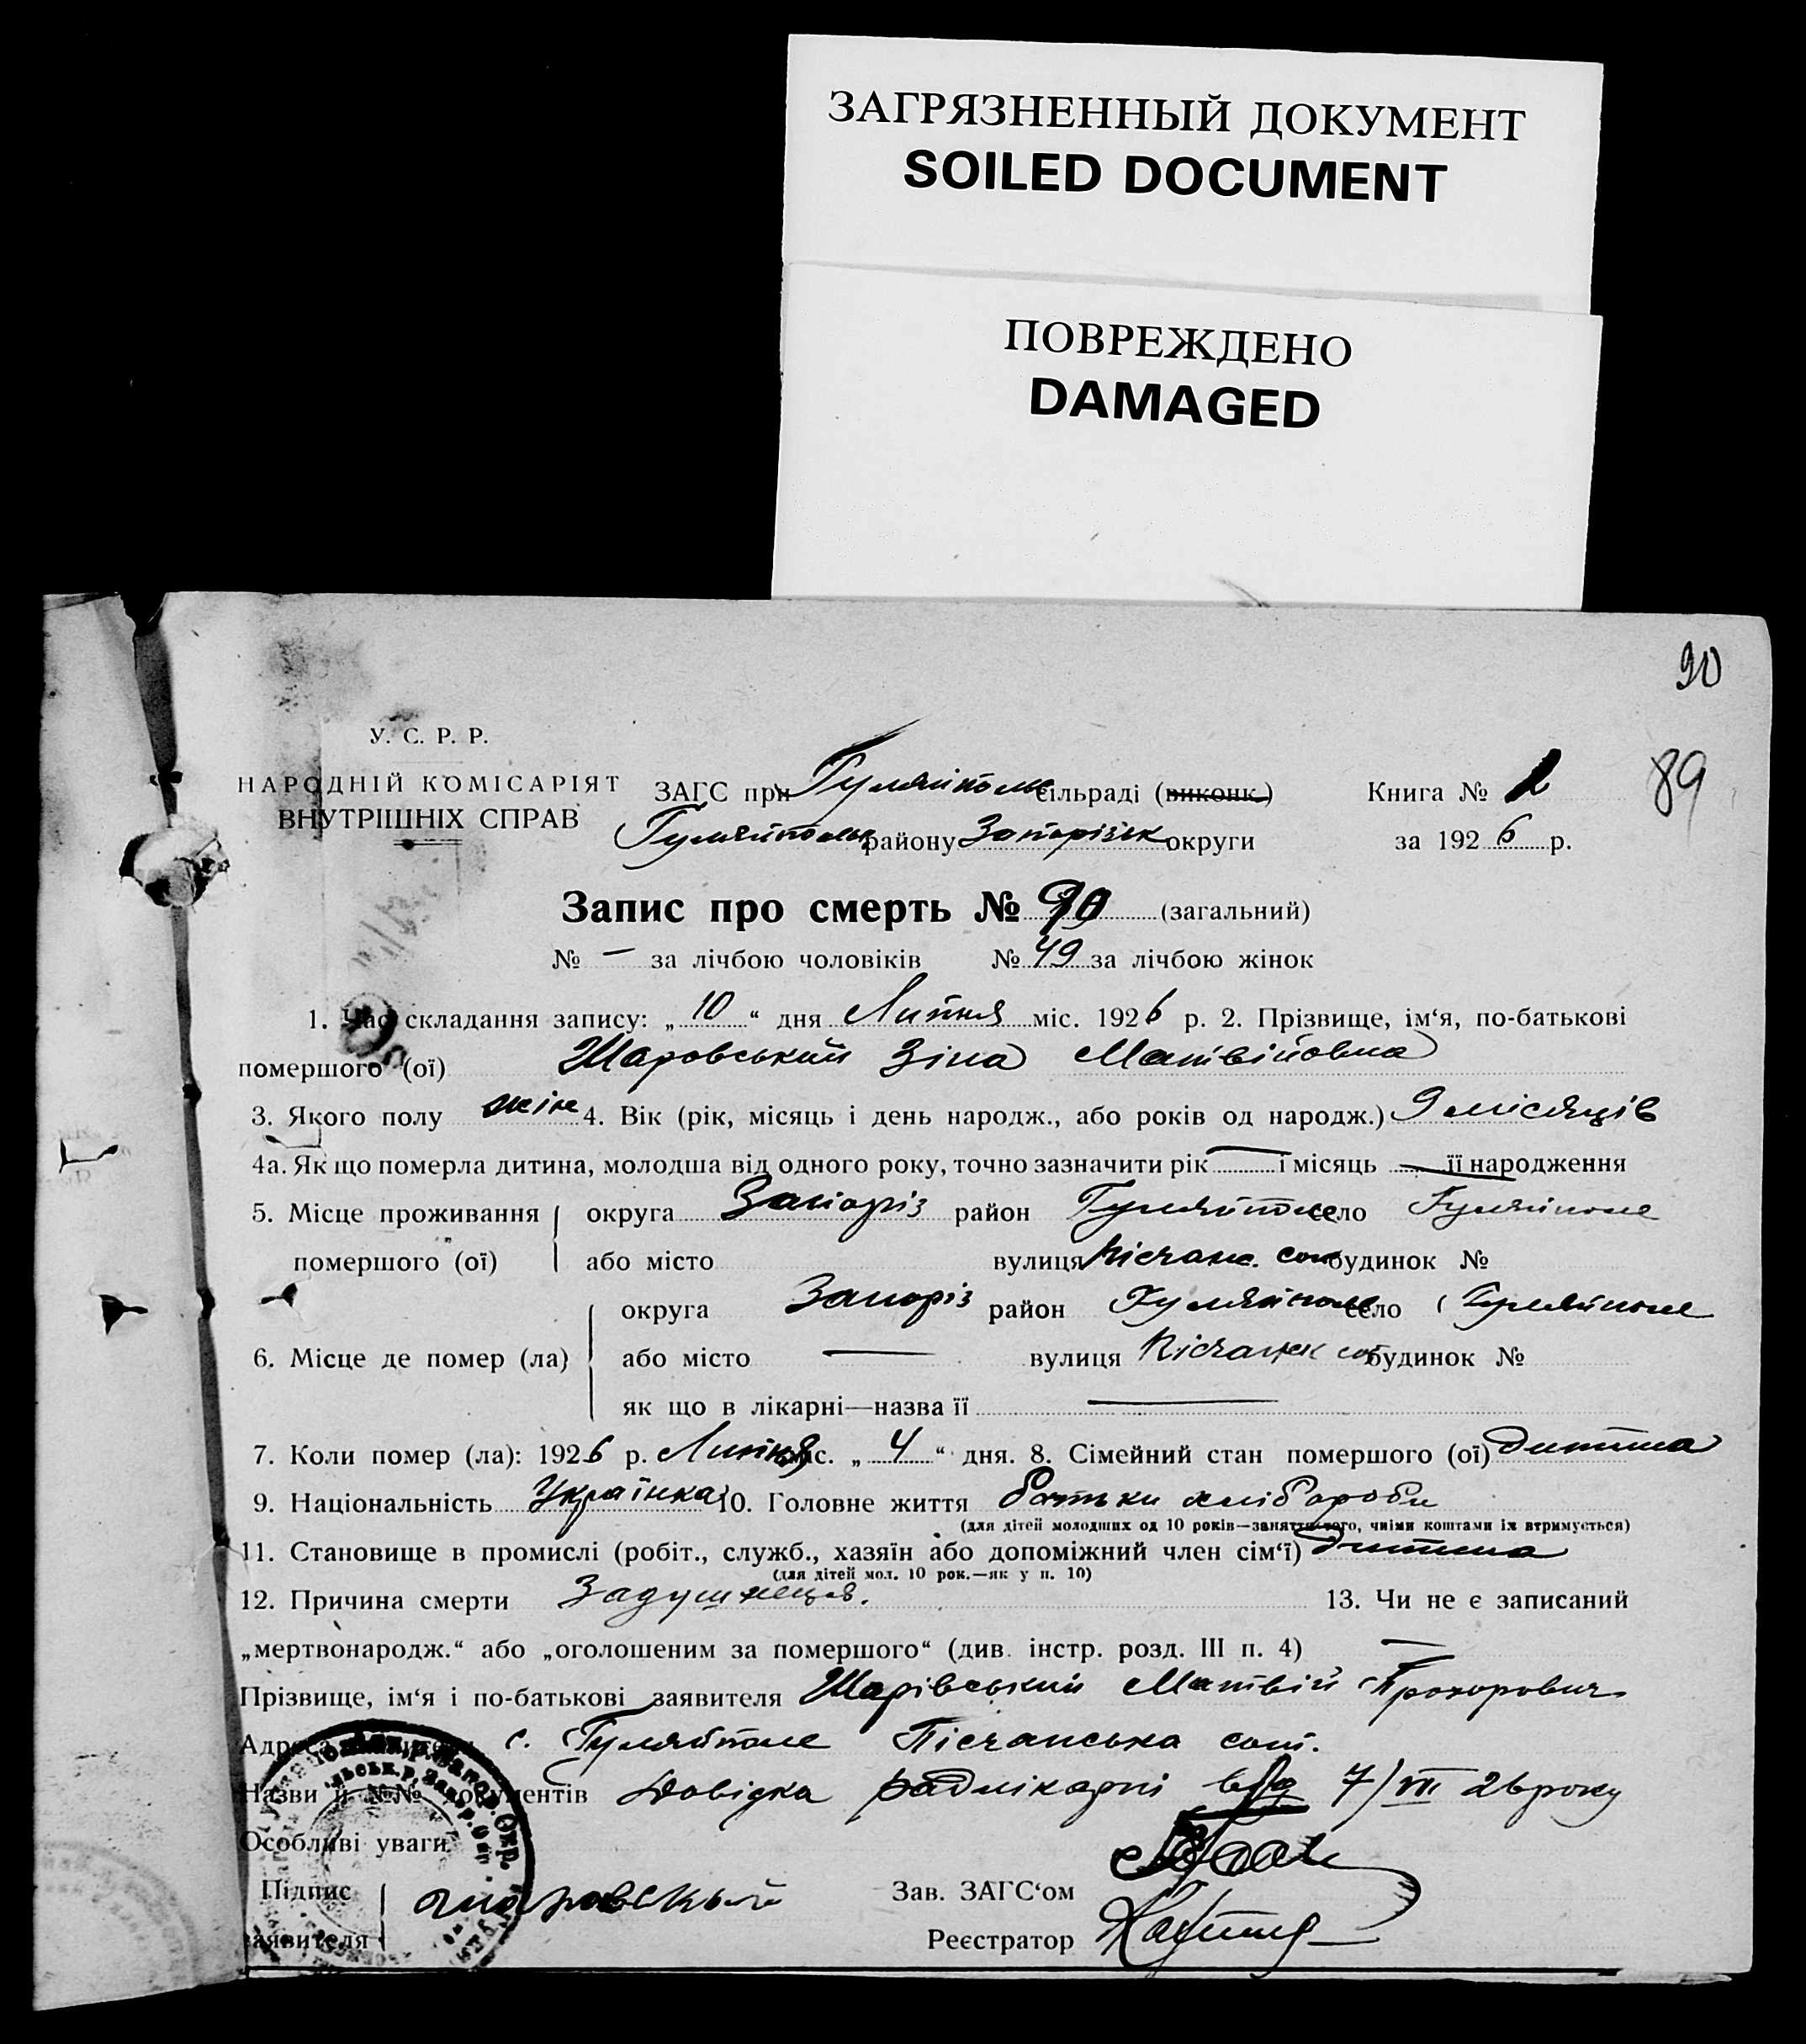 ЗАГРЯЗНЕННЫЙ ДОКУМЕНТ
SOILED DOCUMENT
ПОВРЕЖДЕНО
DAMAGED
90
89
У. С. Р. Р.
НАРОДНІЙ КОМІСАРІЯТ
ВНУТРІШНІХ СПРАВ
ЗАГС при Гуляйпольс сільраді (виконк.) Книга № 2
Гуляйпольськ району Запорізьк округи за 1926 р.
Запис про смерть № 90 (загальний)
№ — за лічбою чоловіків № 49 за лічбою жінок
1. Час складання запису: „10“ дня Липня міс. 1926 р. 2. Прізвище, ім‘я, по-батькові
помершого (ої) Шаровський Зіна Матвійовна
3. Якого полу жін 4. Вік (рік, місяць і день народж., або років од народж.) 9 місяців
4а. Як що померла дитина, молодша від одного року, точно зазначити рік — і місяць — її народження
5. Місце проживання округа Запоріз район Гуляйполе село Гуляйполе
помершого (ої) або місто вулиця Пісчанс. сот будинок №
округа Запоріз район Гуляйполе село Гуляйполе
6. Місце де помер (ла) або місто — вулиця Пісчанськ сот будинок №
як що в лікарні—назва її —
7. Коли помер (ла): 1926 р. Липня міс. „4“ дня. 8. Сімейний стан помершого (ої) дитина
9. Національність Українка 10. Головне життя батьки хлібороби
(для дітей молодших од 10 років—заняття того, чиїми коштами їх втримується)
11. Становище в промислі (робіт., служб., хазяїн або допоміжний член сім‘ї) дитина
(для дітей мол. 10 рок.—як у п. 10)
12. Причина смерти Задушнеця. 13. Чи не є записаний
„мертвонародж.“ або „оголошеним за помершого“ (див. інстр. розд. III п. 4) —
Прізвище, ім‘я і по-батькові заявителя Шарівський Матвій Прохорович
Адреса заявителя с. Гуляйполе Пісчанська сот.
Назви й №№ документів Довідка радлікарні від 7/VII 26 року
Особливі уваги
Підпис заявителя шаровський
Зав. ЗАГС‘ом
Реєстратор